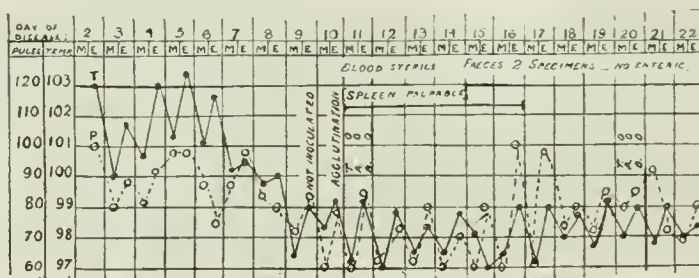 DAY OF DISEASE. 2 3 4 5 6 7 8 9 10 11 12 13 14 15 16 17 18 19 20 21 22
PULSE TEMP M E M E M E M E M E M E M E M E M E M E M E M E M E M E M E M E M E M E M E M E M E
BLOOD STERILE FAECES 2 SPECIMENS _ NO ENTERIC.
120 103 T
SPLEEN PALPABLE
110 102
NOT INOCULATED
AGGLUTINATION
100 101 P
T O A O B O
T O A O B O
100 100
80 99
70 98
60 97